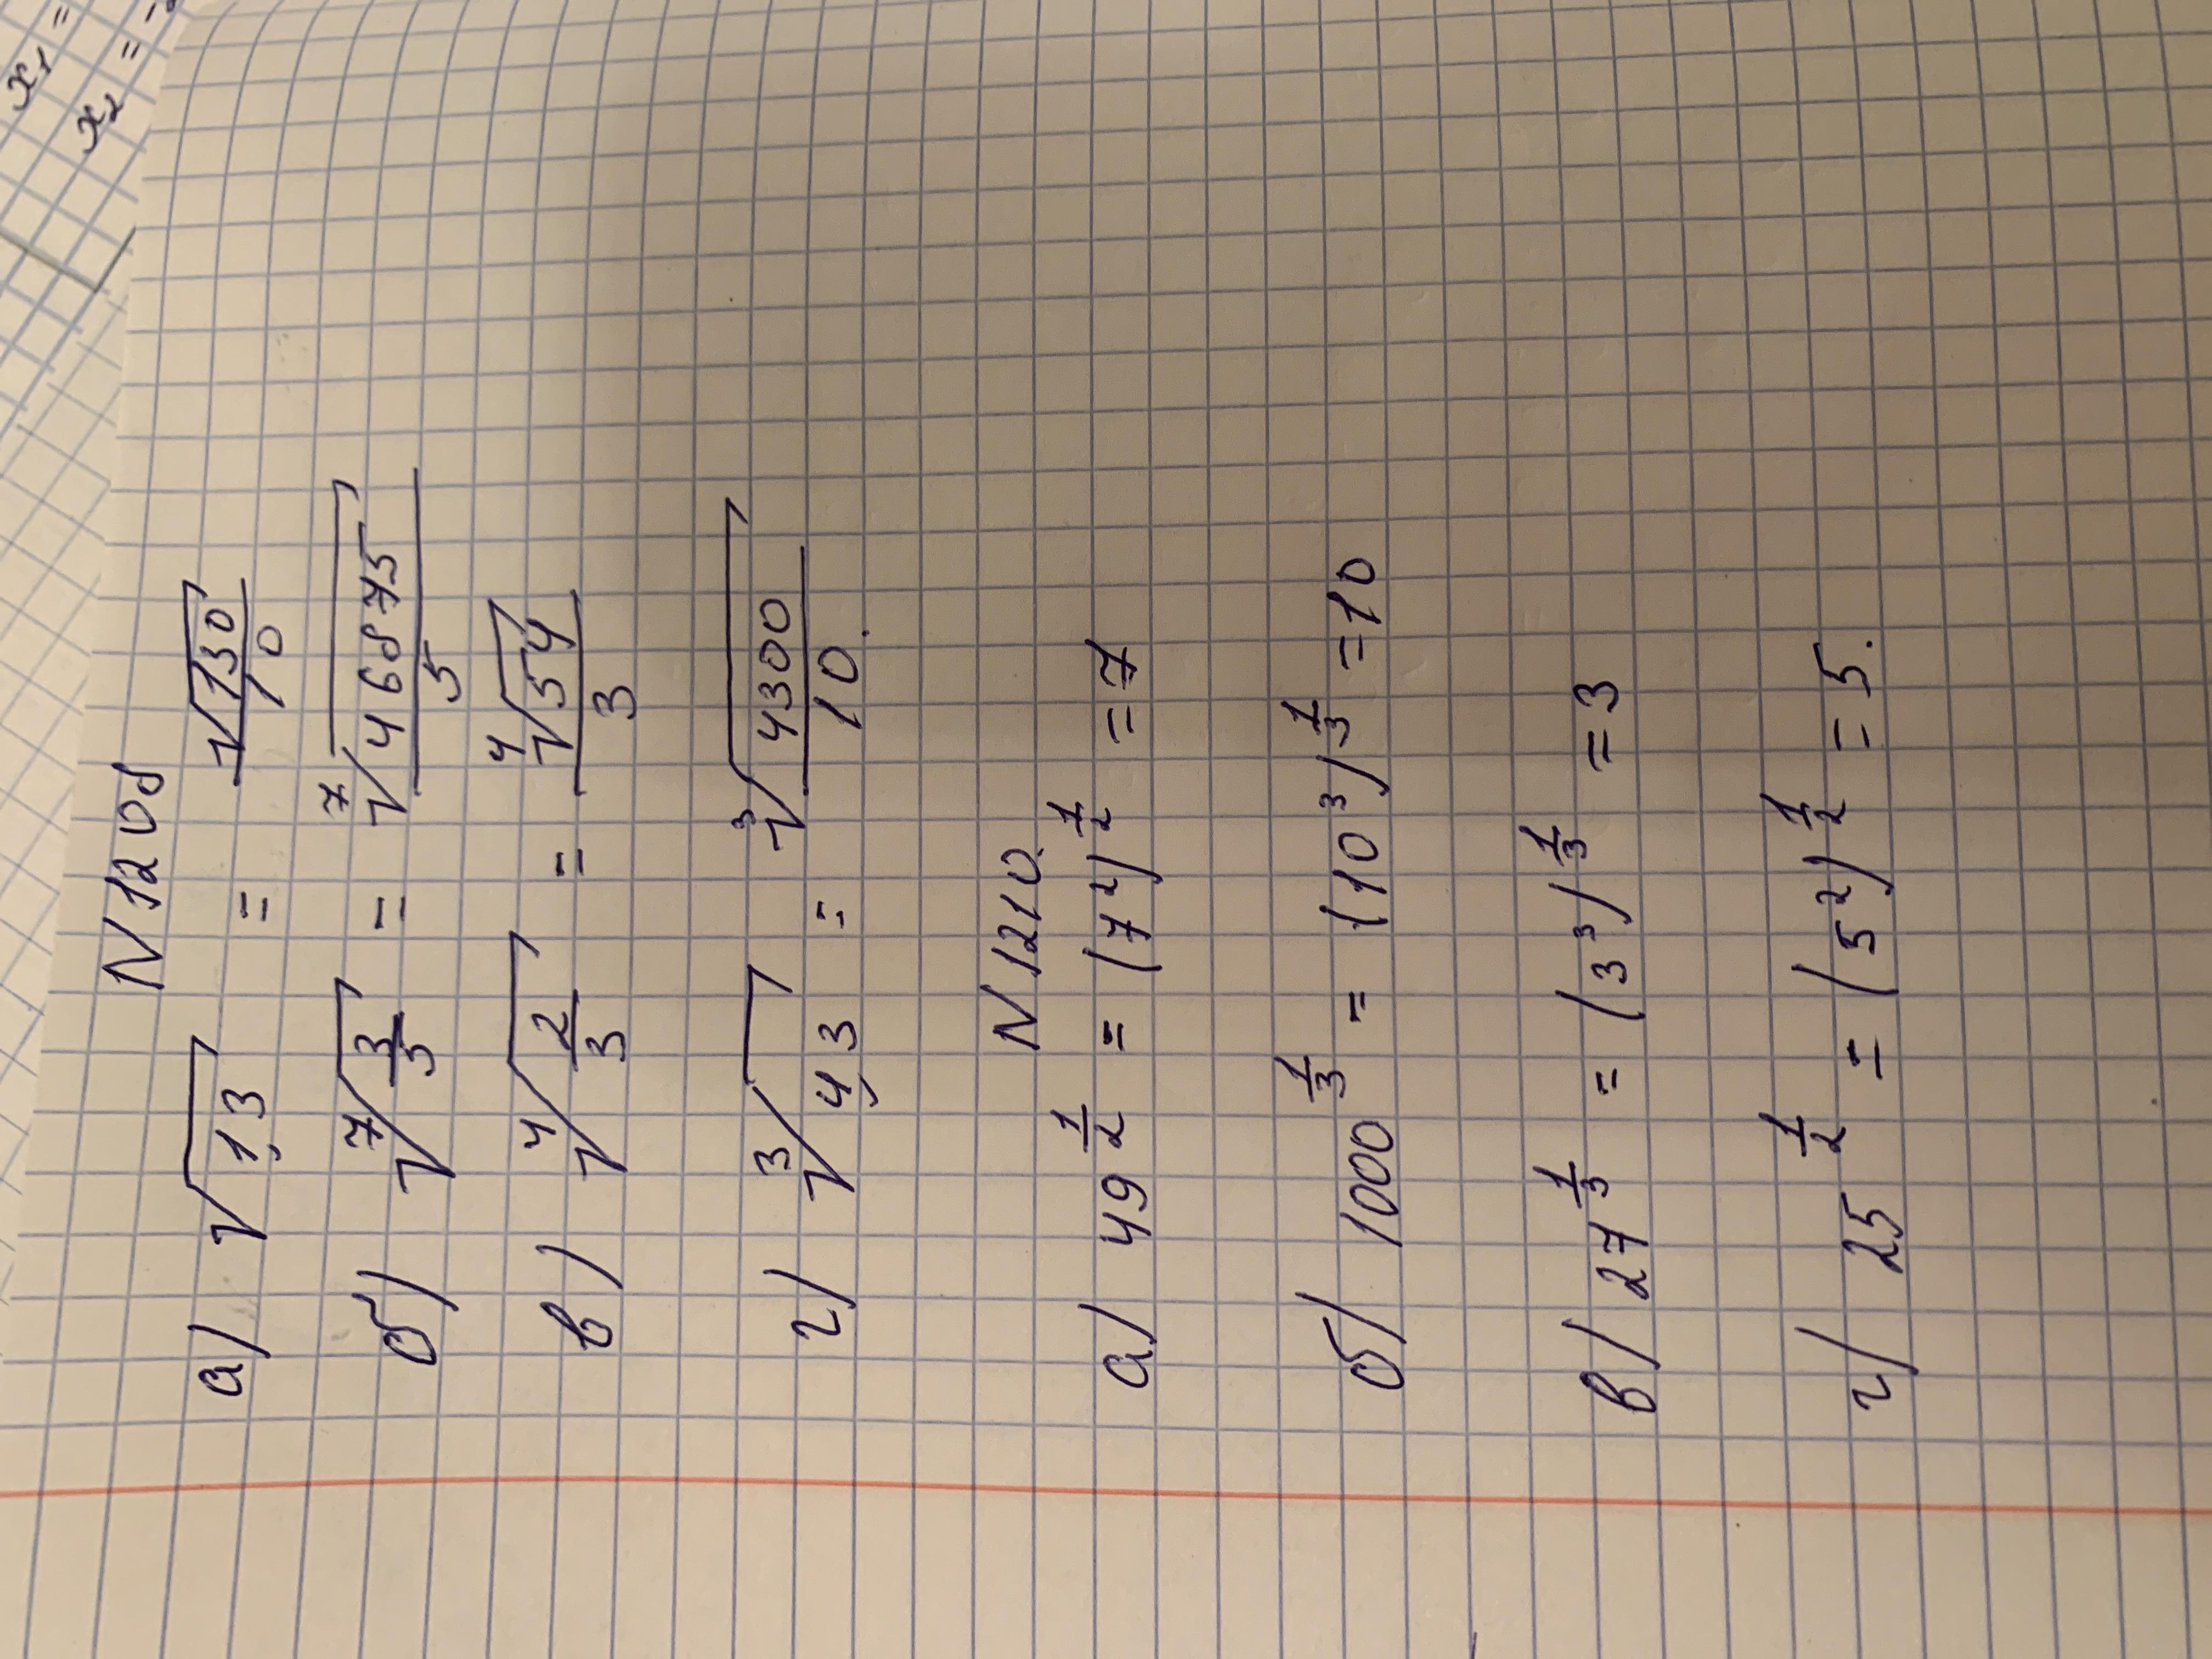 x₁ =
x₂ = -
N 1208
а) √1,3 = √130/10
б) ⁷√(3/5) = ⁷√46875/5
в) ⁴√(2/3) = ⁴√54/3
г) ³√4,3 = ³√4300/10.
N 1210.
а) 49^(1/2) = (7²)^(1/2) = 7
б) 1000^(1/3) = (10³)^(1/3) = 10
в) 27^(1/3) = (3³)^(1/3) = 3
г) 25^(1/2) = (5²)^(1/2) = 5.